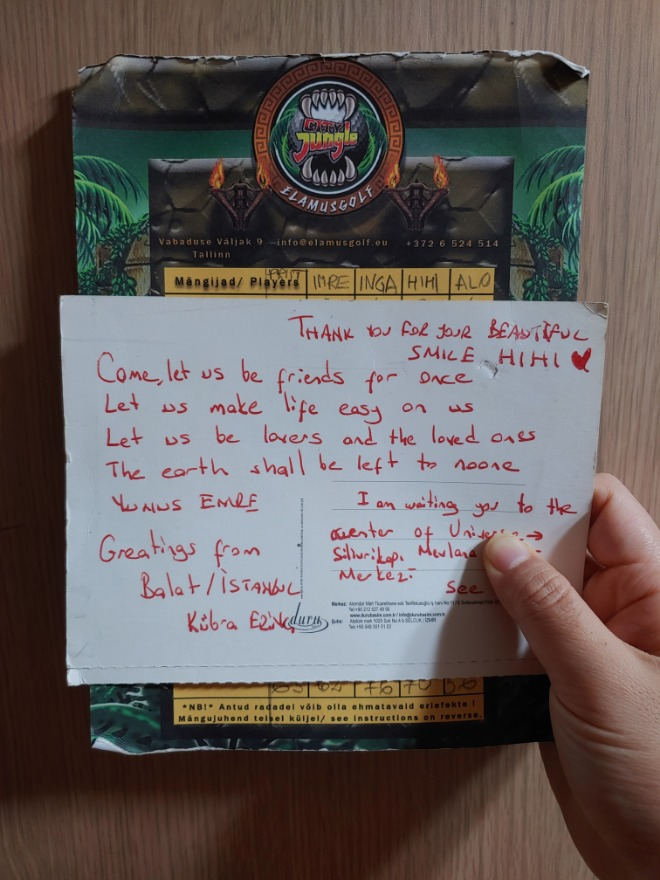 CITY
Jungle
ELAMUSGOLF
Vabaduse Väljak 9 info@elamusgolf.eu +372 6 524 514
Tallinn
Mängijad/ Players IMRE INGA HIHI ALO
THANK YOU FOR YOUR BEAUTIFUL
SMILE HIHI ♥
Come, let us be friends for once
Let us make life easy on us
Let us be lovers and the loved ones
The earth shall be left to noone
YUNUS EMRE
I am waiting you to the
center of Universe →
Silivrikapı Mevlana
Merkezi
See
Greatings from
Balat / İSTANBUL
Kübra
duru
Merkez:
Şube:
*NB!* Antud radadel võib olla ehmatavaid eriefekte !
Mängujuhend teisel küljel/ see instructions on reverse.